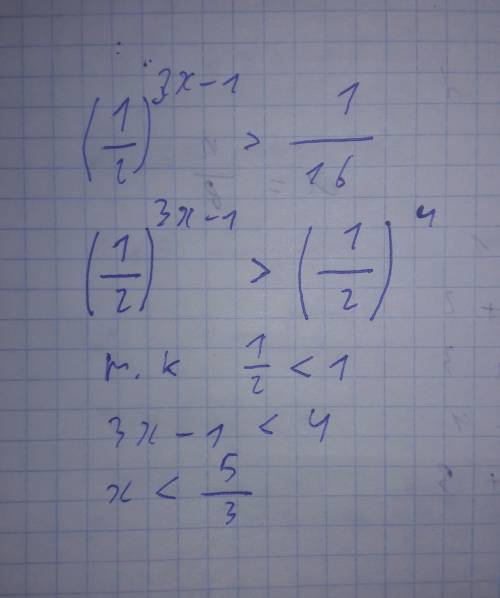 (1/2)^(3x-1) > 1/16
(1/2)^(3x-1) > (1/2)^4
т.к 1/2 < 1
3x-1 < 4
x < 5/3